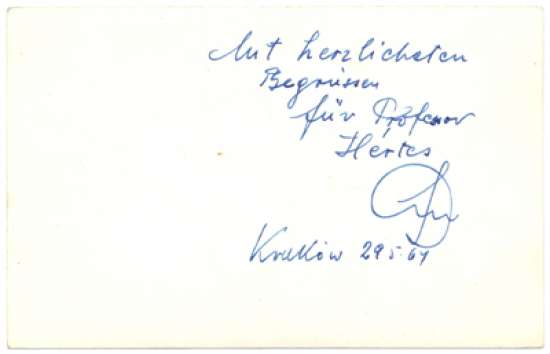 Mit herzlichsten
Begrüssen
für Professor
Héries
Kraków 29.5.64